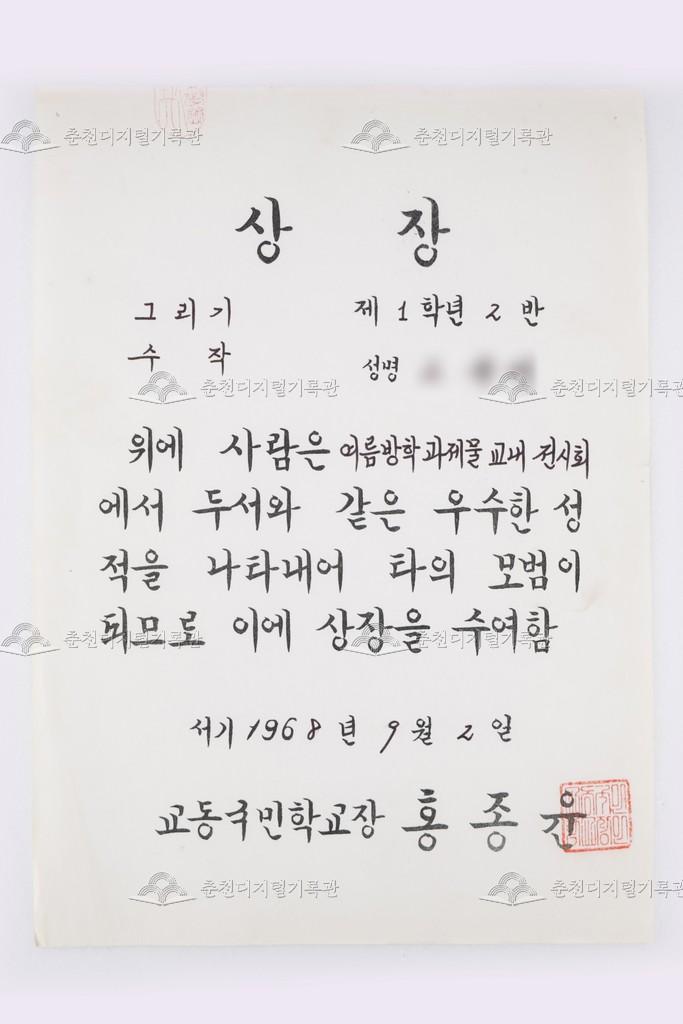 춘천디지털기록관 춘천디지털기록관
상 장
그리기 제 1 학년 2 반
수 작 성명
춘천디지털기록관 춘천디지털기록관
위에 사람은 여름방학과제물 교내 전시회
에서 두서와 같은 우수한 성
적을 나타내어 타의 모범이
되므로 이에 상장을 수여함
춘천디지털기록관 춘천디지털기록관
서기 1968 년 9 월 2 일
교동국민학교장 홍 종 윤
춘천디지털기록관 춘천디지털기록관